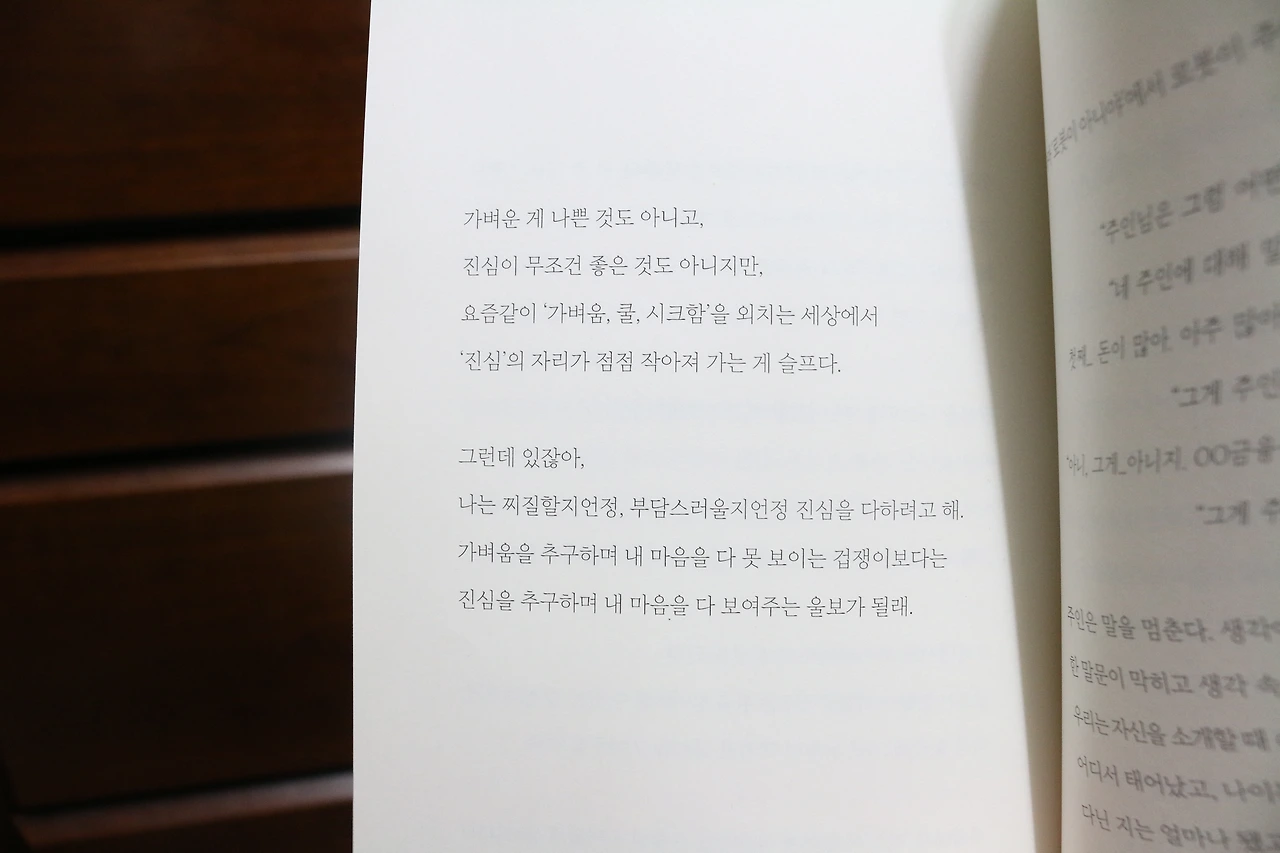 가벼운 게 나쁜 것도 아니고,
진심이 무조건 좋은 것도 아니지만,
요즘같이 ‘가벼움, 쿨, 시크함’을 외치는 세상에서
‘진심’의 자리가 점점 작아져 가는 게 슬프다.
그런데 있잖아,
나는 찌질할지언정, 부담스러울지언정 진심을 다하려고 해.
가벼움을 추구하며 내 마음을 다 못 보이는 겁쟁이보다는
진심을 추구하며 내 마음을 다 보여주는 울보가 될래.
로봇이 아니야에서 로봇이
“주인님은 그럼 어떤
“네 주인에 대해 말
첫째_ 돈이 많아. 아주 많아
“그게 주인
“아니, 그게_아니지. OO금융
“그게 주
주인은 말을 멈춘다. 생각
한 말문이 막히고 생각 속
우리는 자신을 소개할 때
어디서 태어났고, 나이
다닌 지는 얼마나